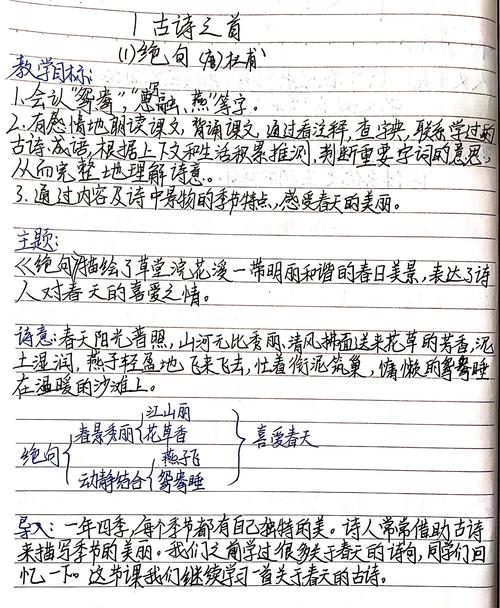 1 古诗之首
(1) 绝句 (唐) 杜甫
教学目标:
1. 会认“鸳鸯”,“惠崇、融、燕”等字。
2. 有感情地朗读课文,背诵课文,通过看注释,查字典,联系学过的
古诗、成语,根据上下文和生活积累推测,判断重要字词的意思,
从而完整地理解诗意。
3. 通过内容及诗中景物的季节特点,感受春天的美丽。
主题:
《绝句》描绘了草堂浣花溪一带明丽和谐的春日美景,表达了诗
人对春天的喜爱之情。
诗意: 春天阳光普照,山河无比秀丽,清风拂面送来花草的芳香,泥
土湿润,燕子轻盈地飞来飞去,忙着衔泥筑巢,慵懒的鸳鸯睡
在温暖的沙滩上。
江山丽
春景秀丽
花草香
绝句
喜爱春天
燕子飞
动静结合
鸳鸯睡
导入: 一年四季,每个季节都有自己独特的美。诗人常常借助古诗
来描写季节的美丽。我们之前学过很多关于春天的诗句,同学们回
忆一下。这节课我们继续学习一首关于春天的古诗。